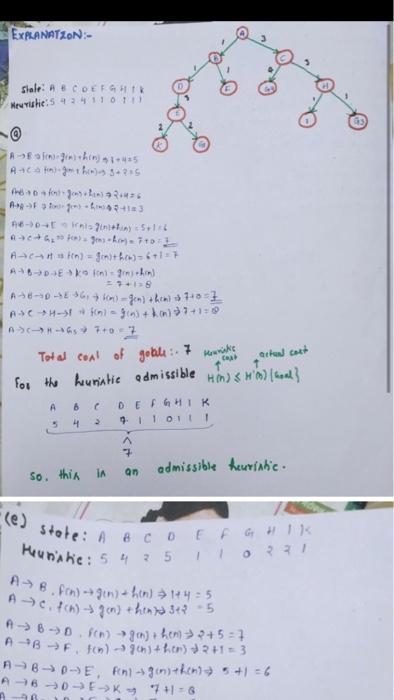 EXPLANATION:-
A
1
3
B
C
1
1
4
3
D
F
G2
H
3
1
1
E
I
G3
2
2
K
G
State: A B C D E F G H I K
Heuristic: 5 4 2 4 1 1 0 1 1 1
a
A→B ⇒ f(n) = g(n) + h(n) ⇒ 1+4=5
A→C ⇒ f(n) = g(n) + h(n) ⇒ 3+2=5
A→B→D ⇒ f(n) = g(n) + h(n) ⇒ 2+4=6
A→B→F ⇒ f(n) = g(n) + h(n) ⇒ 2+1=3
AB→D→E ⇒ f(n) = g(n) + h(n) = 5+1=6
A→C→G2 ⇒ f(n) = g(n) + h(n) = 7+0=7
A→C→H ⇒ f(n) = g(n) + h(n) = 6+1=7
A→B→D→E→K ⇒ f(n) = g(n) + h(n)
= 7+1=8
A→B→D→E→G1 ⇒ f(n) = g(n) + h(n) ⇒ 7+0=7
A→C→H→I ⇒ f(n) = g(n) + h(n) ⇒ 7+1=8
A→C→H→G3 ⇒ 7+0=7
Total cost of goble:- 7
Heuristic cost
actual cost
For the heuristic admissible H(n) ≤ H*(n) {Goal}
A B C D E F G H I K
5 4 2 4 1 1 0 1 1 1
^
7
So, this is an admissible heuristic.
(e) State: A B C D E F G H I K
Heuristic: 5 4 2 5 1 1 0 2 2 1
A→B, f(n) → g(n) + h(n) ⇒ 1+4=5
A→C, f(n) → g(n) + h(n) ⇒ 3+2=5
A→B→D, f(n) → g(n) + h(n) ⇒ 2+5=7
A→B→F, f(n) → g(n) + h(n) ⇒ 2+1=3
A→B→D→E, f(n) → g(n) + h(n) ⇒ 5+1=6
A→B→D→E→K ⇒ 7+1=8